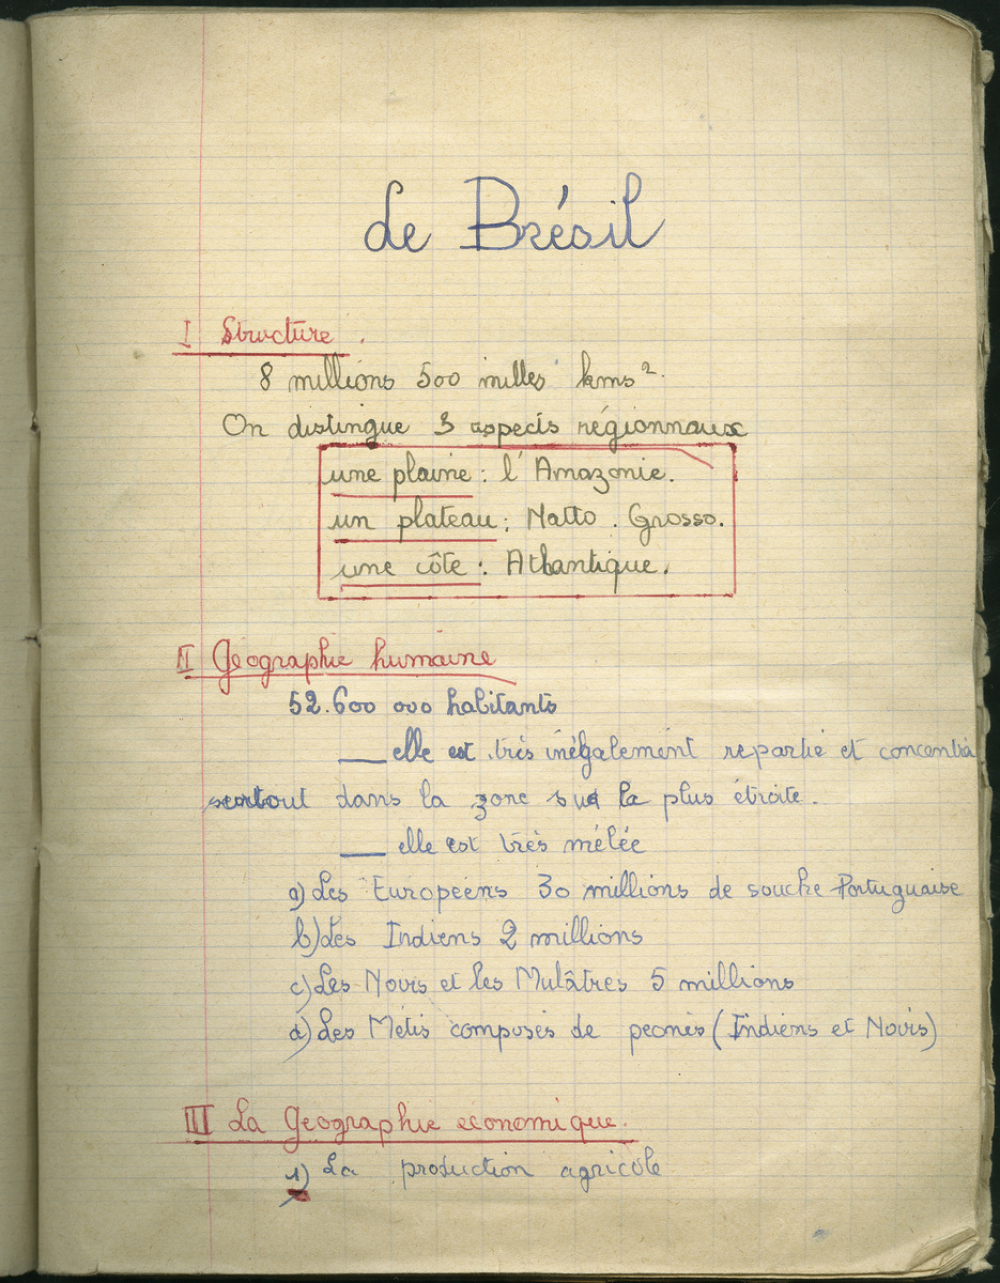 Le Brésil
I Structure.
8 millions 500 milles kms².
On distingue 3 aspects régionnaux
une plaine : l'Amazonie.
un plateau : Matto. Grosso.
une côte : Athantique.
II Géographie humaine
52.600 000 habitants
__ elle est très inégalement repartie et concentrá
surtout dans la zone sud la plus étroite.
__ elle est très mélée
a) Les Européens 30 millions de souche Portuguaise
b) Les Indiens 2 millions
c) Les Noirs et les Mulâtres 5 millions
d) Les Métis composés de peones (Indiens et Noirs)
III La Géographie économique.
1) La production agricole